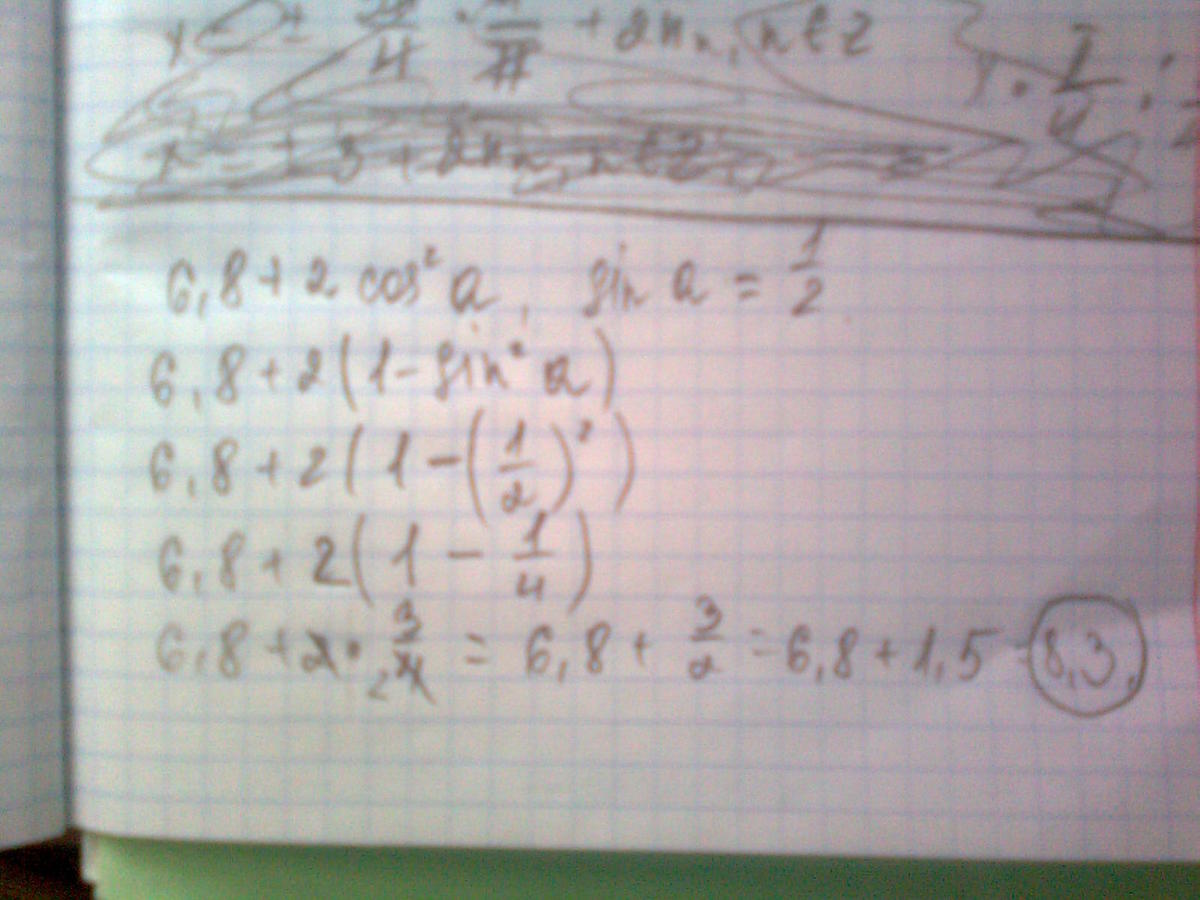 + 2πn, n∈Z
6,8 + 2 cos² a, sin a = 1/2
6,8 + 2(1 - sin² a)
6,8 + 2(1 - (1/2)²)
6,8 + 2(1 - 1/4)
6,8 + 2 · 3/4 2 = 6,8 + 3/2 = 6,8 + 1,5 = 8,3.